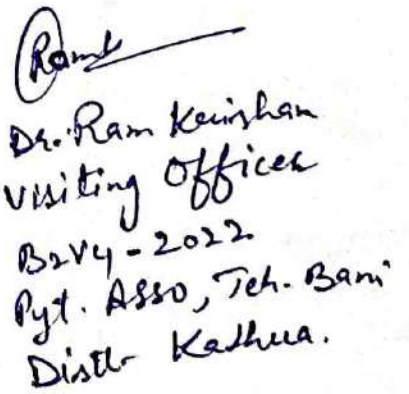 Ram
Dr. Ram Krishan
Visiting Officer
B2V4-2022
Pyt. ASSO, Teh. Bani
Distt- Kathua.